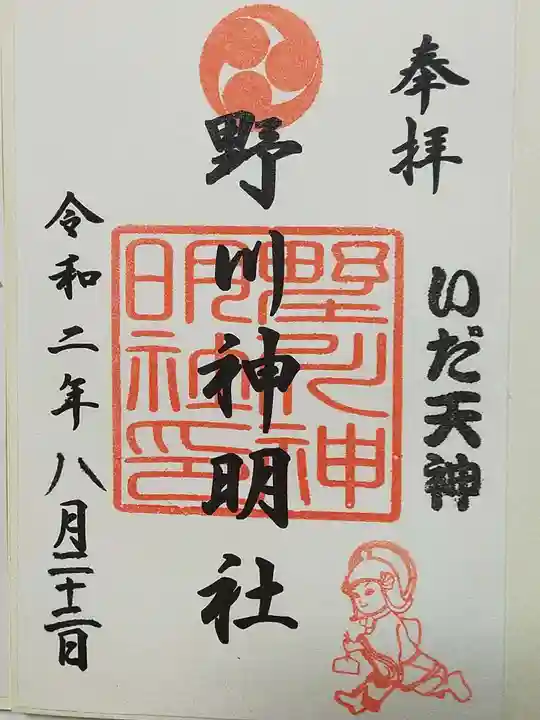 奉拝
いだ天神
野川神明社
野川神明社印
令和二年八月二十二日